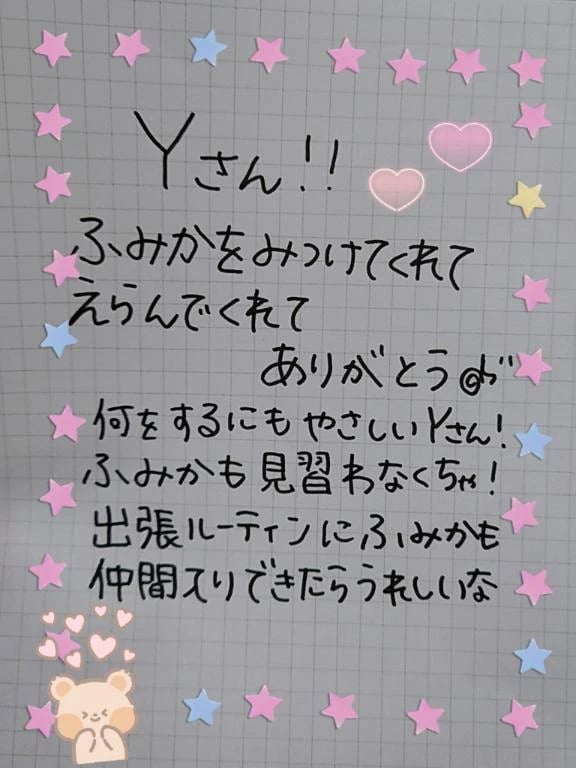 Yさん!!
ふみかをみつけてくれて
えらんでくれて
ありがとう
何をするにもやさしいYさん!
ふみかも見習わなくちゃ!
出張ルーティンにふみかも
仲間入りできたらうれしいな